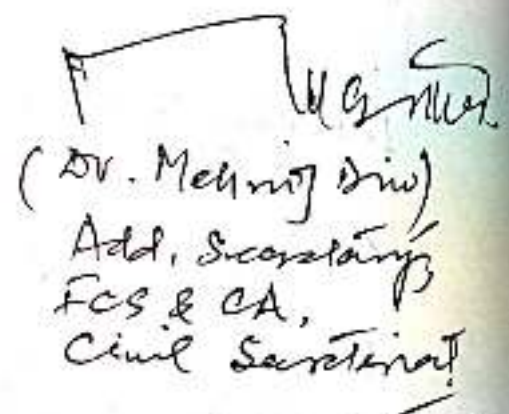 (Dr. Mehraj Din)
Add. Secretary,
FCS & CA,
Civil Secretariat